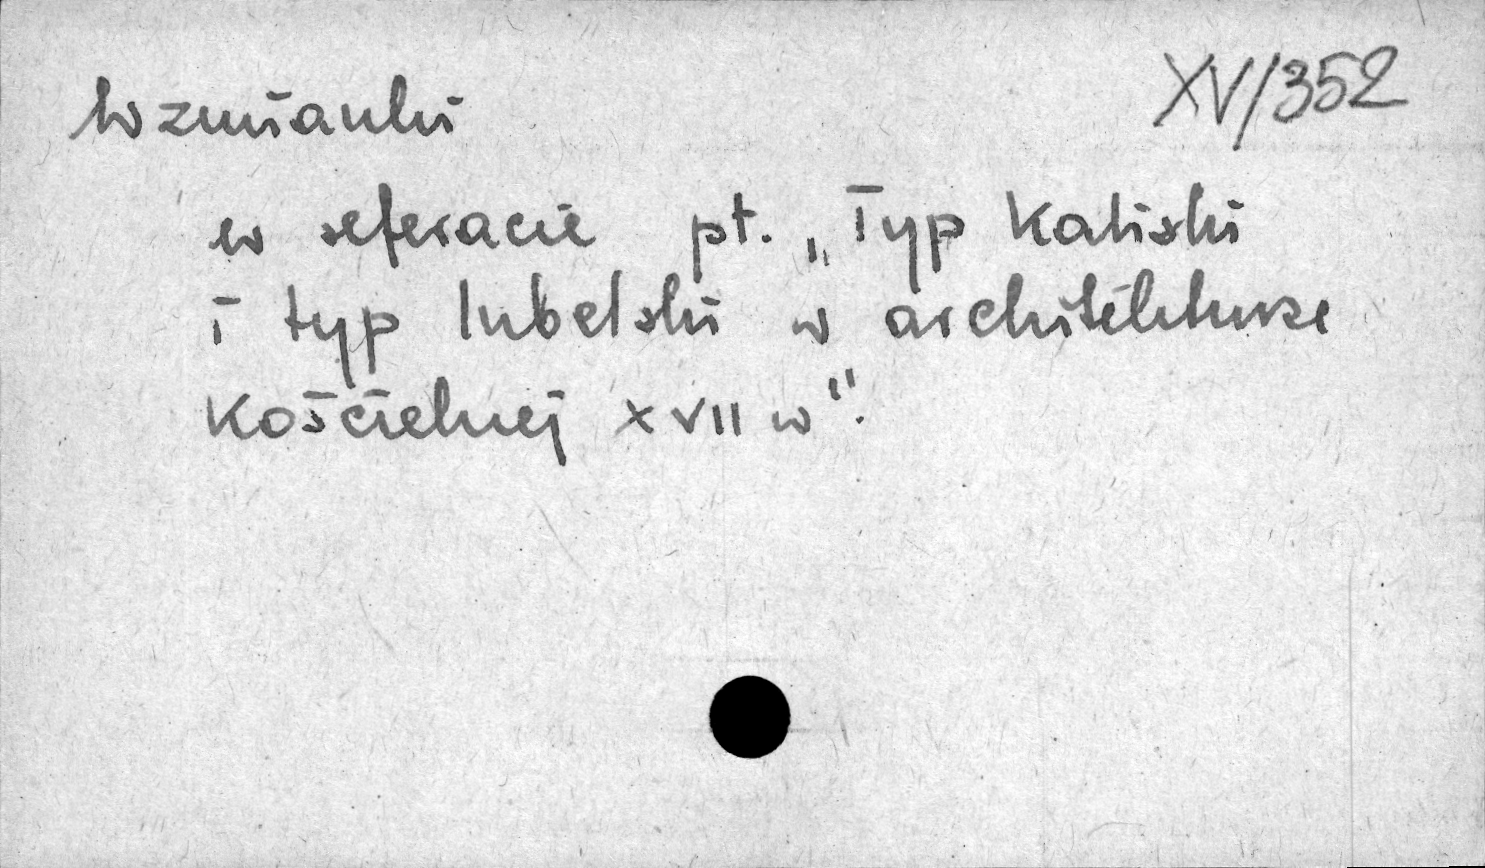 XV/352
Wzmianki
w referacie pt. „Typ Kaliski
i typ lubelski w architekturze
Kościelnej XVII w".